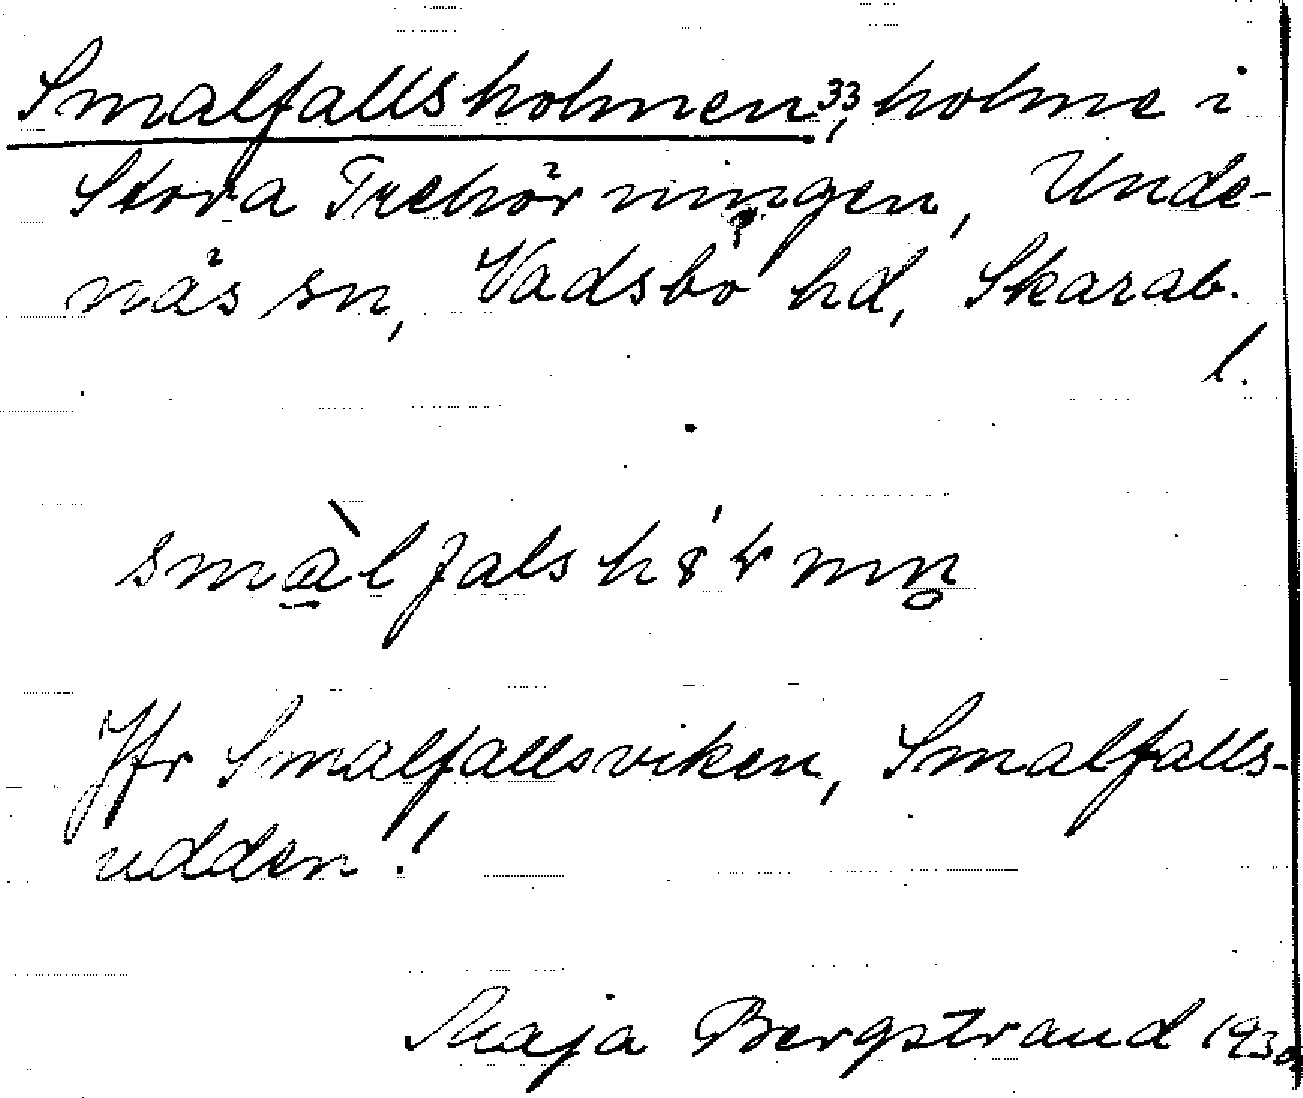 Smalfallsholmen33, holme i
Stora Trehörningen, Unde-
näs sn, Vadsbo hd, Skarab.
l.
Jfr Smalfallsviken, Smalfalls-
udden!
Maja Bergstrand 1930